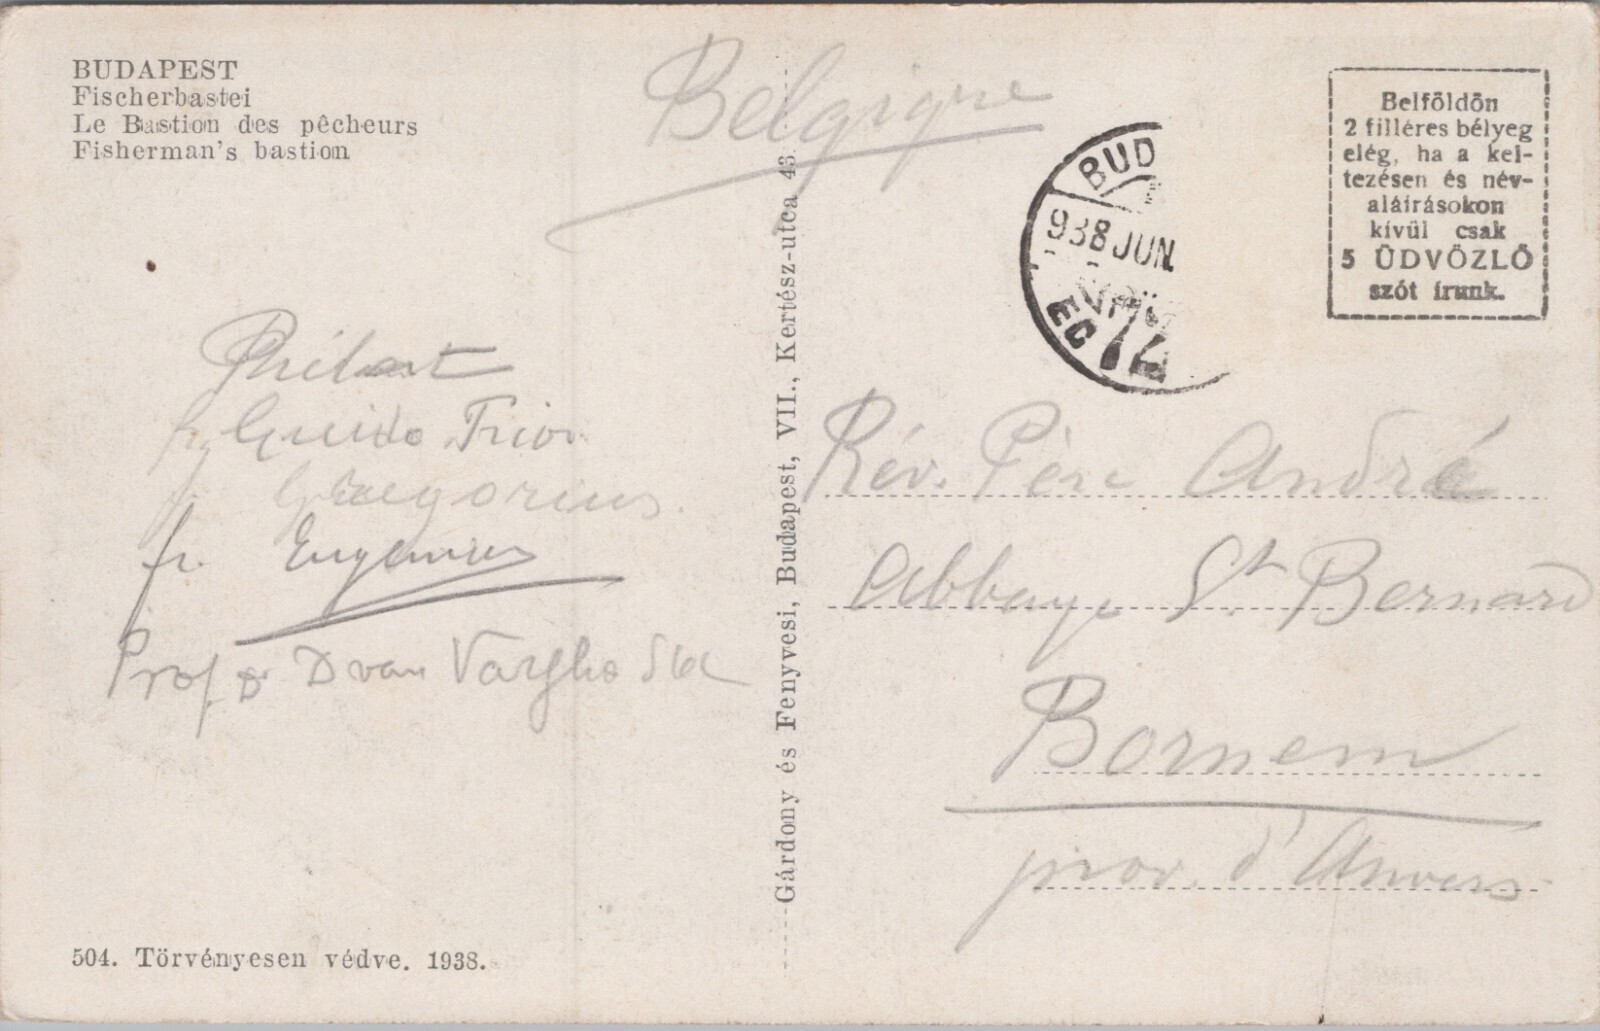 BUDAPEST
Fischerbastei
Le Bastion des pêcheurs
Fisherman's bastion
Belgique
BUD
938 JUN.
EC
72
Belföldön
2 filléres bélyeg
elég, ha a kel-
tezésen és név-
aláirásokon
kívül csak
5 ÜDVÖZLŐ
szót írunk.
Guido
Gregorius.
fr. Eugenius
Prof. Dr
Gárdony és Fenyvesi, Budapest, VII., Kertész-utca 43.
Rév. Père André
Abbaye St. Bernard
Bornem
prov. d'Anvers
504. Törvényesen védve. 1938.